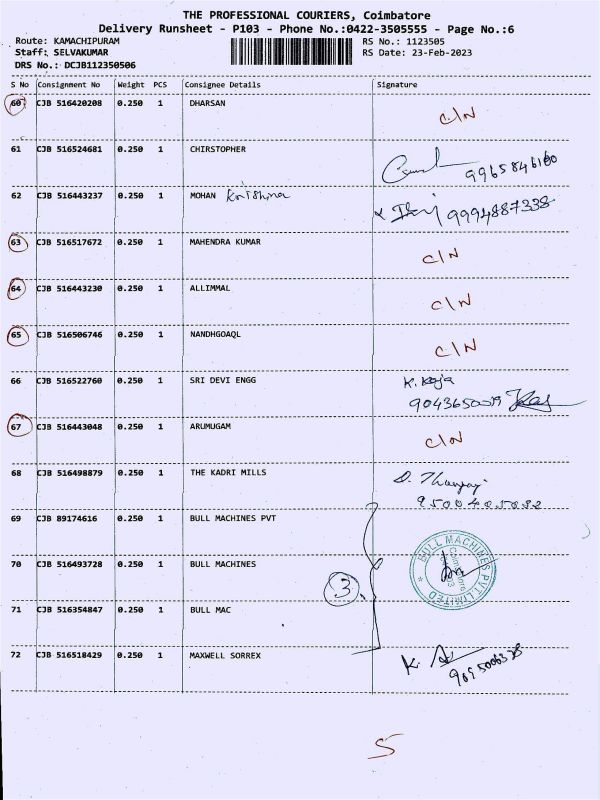 THE PROFESSIONAL COURIERS, Coimbatore
Delivery Runsheet - P103 - Phone No.:0422-3505555 - Page No.:6
Route: KAMACHIPURAM
RS No.: 1123505
Staff: SELVAKUMAR
RS Date: 23-Feb-2023
DRS No.: DCJB112350506
S No Consignment No Weight PCS Consignee Details Signature
60 CJB 516420208 0.250 1 DHARSAN C/N
61 CJB 516524681 0.250 1 CHIRSTOPHER 9965846160
62 CJB 516443237 0.250 1 MOHAN Krishna 9994887338
63 CJB 516517672 0.250 1 MAHENDRA KUMAR C/N
64 CJB 516443230 0.250 1 ALLIMMAL C/N
65 CJB 516506746 0.250 1 NANDHGOAQL C/N
66 CJB 516522760 0.250 1 SRI DEVI ENGG K. Koja
67 CJB 516443048 0.250 1 ARUMUGAM C/N
68 CJB 516498879 0.250 1 THE KADRI MILLS
9500405032
69 CJB 89174616 0.250 1 BULL MACHINES PVT
70 CJB 516493728 0.250 1 BULL MACHINES 3 BULL MACHINES PVT LIMITED
71 CJB 516354847 0.250 1 BULL MAC
72 CJB 516518429 0.250 1 MAXWELL SORREX
5